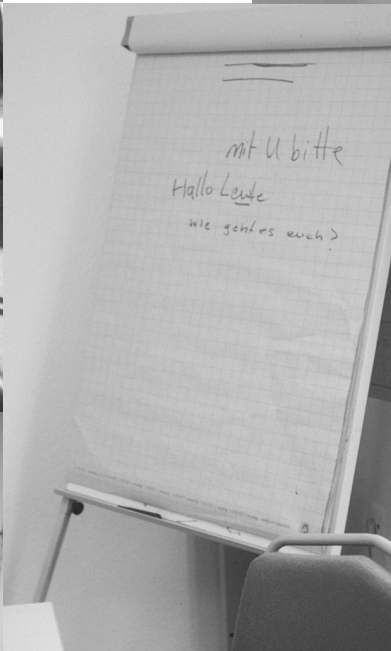 mit U bitte
Hallo Leute
wie geht es euch?